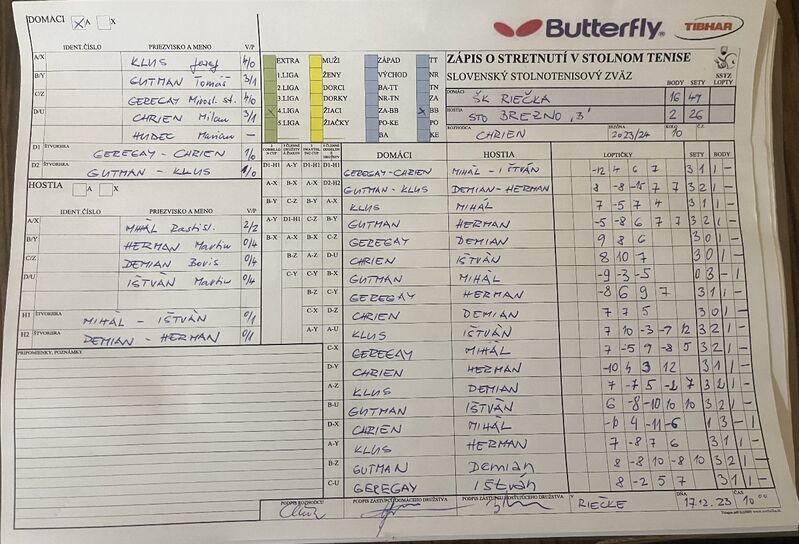 DOMÁCI A X
IDENT.ČÍSLO PRIEZVISKO A MENO V/P
A/X KLUS Jozef 4/0
B/Y GUTMAN Tomáš 3/1
C/Z GEREGAY Mirosl. st. 4/0
D/U CHRIEN Milan 3/1
HUDEC Marian -
D1 ŠTVORHRA GEREGAY - CHRIEN 1/0
D2 ŠTVORHRA GUTMAN - KLUS 1/0
HOSTIA A X
IDENT.ČÍSLO PRIEZVISKO A MENO V/P
A/X MIHÁL Rastisl. 2/2
B/Y HERMAN Martin 0/4
C/Z DEMIAN Boris 0/4
D/U IŠTVÁN Martin 0/4
H1 ŠTVORHRA MIHÁL - IŠTVÁN 0/1
H2 ŠTVORHRA DEMIAN - HERMAN 0/1
PRIPOMIENKY, POZNÁMKY
Butterfly TIBHAR
EXTRA MUŽI ZÁPAD TT
1.LIGA ŽENY VÝCHOD NR
2.LIGA DORCI BA-TT TN
3.LIGA DORKY NR-TN ZA
4.LIGA ŽIACI ZA-BB BB
5.LIGA ŽIAČKY PO-KE PO
BA KE
ZÁPIS O STRETNUTÍ V STOLNOM TENISE
SLOVENSKÝ STOLNOTENISOVÝ ZVÄZ
SSTZ
BODY SETY LOPTY
DOMÁCI ŠK RIEČKA 16 49
HOSTIA STO BREZNO "B" 2 26
ROZHODCA CHRIEN SEZÓNA 2023/24 KOLO 10 Č.Z.
DOMÁCI HOSTIA LOPTIČKY SETY BODY
D1-H1 GEREGAY-CHRIEN MIHÁL - IŠTVÁN -12 4 6 7 3 1 1 -
D2-H2 GUTMAN - KLUS DEMIAN-HERMAN 8 -8 -15 7 7 3 2 1 -
KLUS MIHÁL 7 -5 7 4 3 1 1 -
GUTMAN HERMAN -5 -8 6 7 7 3 2 1 -
GEREGAY DEMIAN 9 8 6 3 0 1 -
D-U CHRIEN IŠTVÁN 8 10 7 3 0 1 -
B-X GUTMAN MIHÁL -9 -3 -5 0 3 - 1
C-Y GEREGAY HERMAN -8 6 9 7 3 1 1 -
D-Z CHRIEN DEMIAN 7 7 5 3 0 1 -
A-U KLUS IŠTVÁN 7 10 -3 -9 12 3 2 1 -
C-X GEREGAY MIHÁL 7 -5 9 -8 5 3 2 1 -
D-Y CHRIEN HERMAN -10 4 3 12 3 1 1 -
A-Z KLUS DEMIAN 7 -7 5 -2 7 3 2 1 -
B-U GUTMAN IŠTVÁN 6 -8 -10 10 10 3 2 1 -
D-X CHRIEN MIHÁL 4 -11 -6 1 3 - 1
A-Y KLUS HERMAN 7 -8 7 6 3 1 1 -
B-Z GUTMAN Demian 8 -8 10 -8 10 3 2 1 -
C-U GEREGAY IŠtván 8 -2 5 7 3 1 1 -
PODPIS ROZHODCU PODPIS ZÁSTUPCU DOMÁCEHO DRUŽSTVA PODPIS ZÁSTUPCU HOSŤUJÚCEHO DRUŽSTVA V RIEČKE DŇA 17.12.23 ČAS 10 00